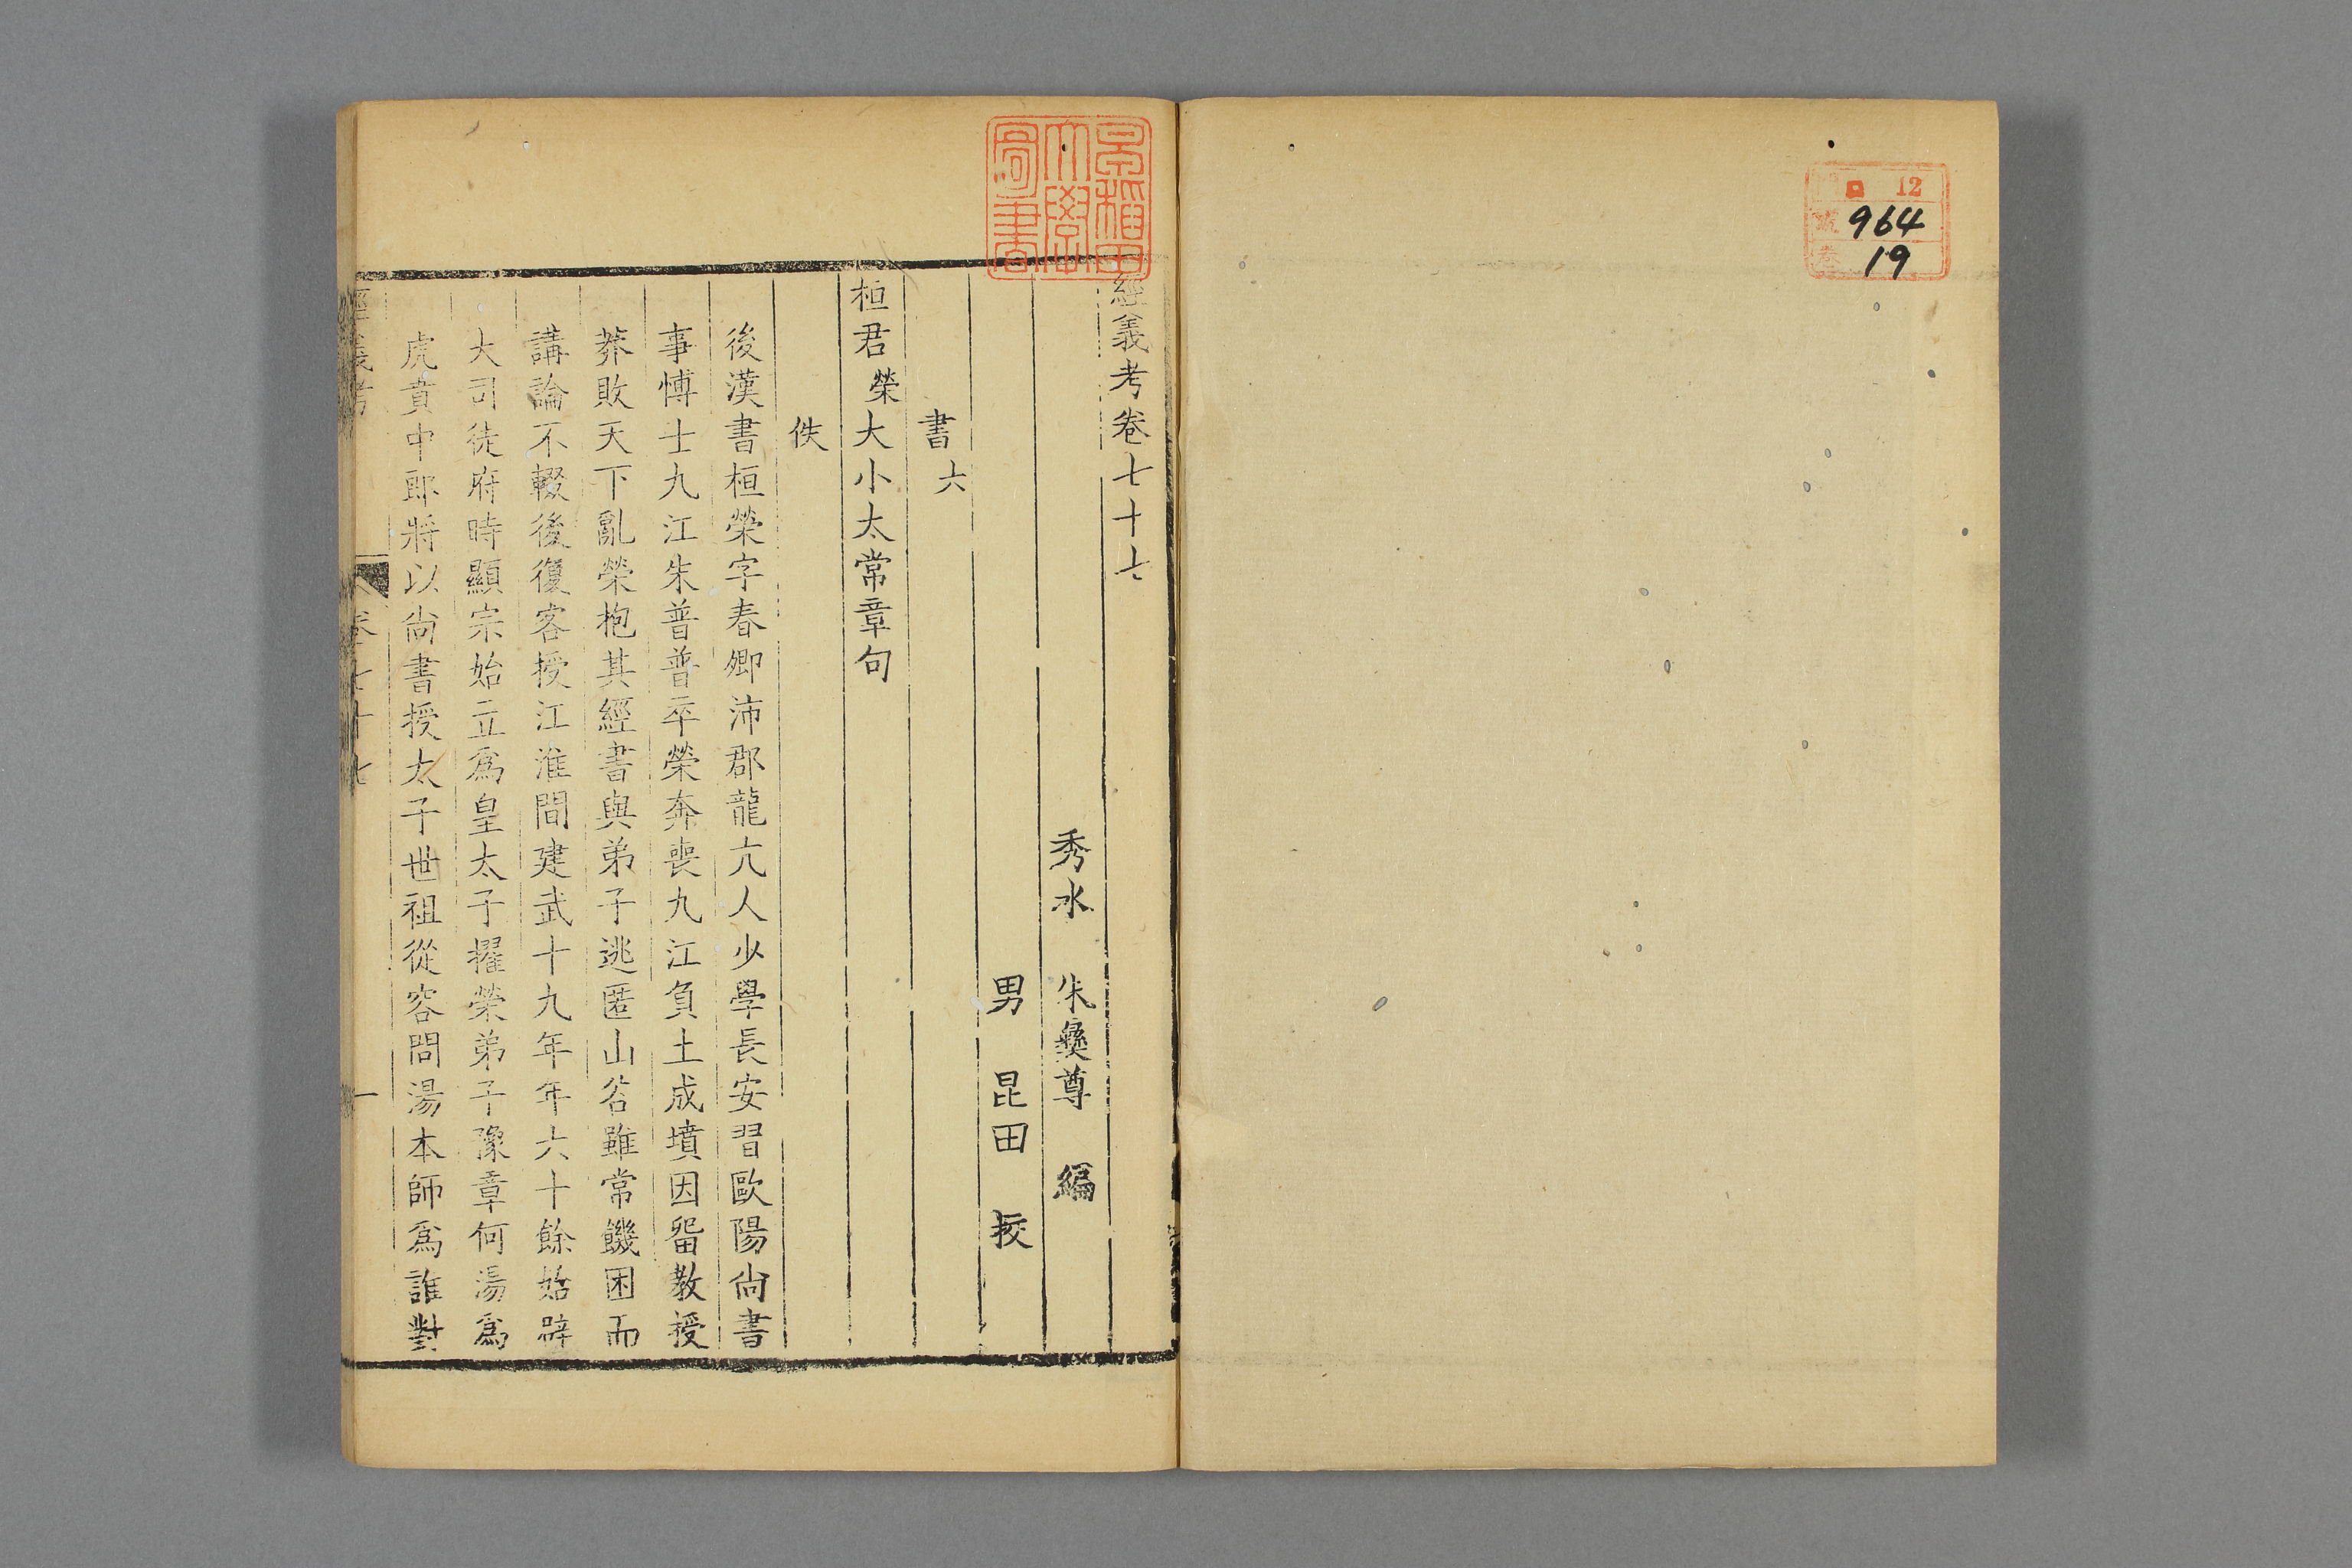 12
964
19
早稲田大學圖書
經義考卷七十七
秀水 朱彝尊 編
男 昆田 挍
書六
桓君榮大小太常章句
佚
後漢書桓榮字春卿沛郡龍亢人少學長安習歐陽尚書
事博士九江朱普普卒榮奔喪九江負土成墳因留教授
莽敗天下亂榮抱其經書與弟子逃匿山谷雖常饑困而
講論不輟後復客授江淮間建武十九年年六十餘始辟
大司徒府時顯宗始立爲皇太子擢榮弟子豫章何湯爲
虎賁中郎將以尚書授太子世祖從容問湯本師爲誰對
經義考 卷七十七 一